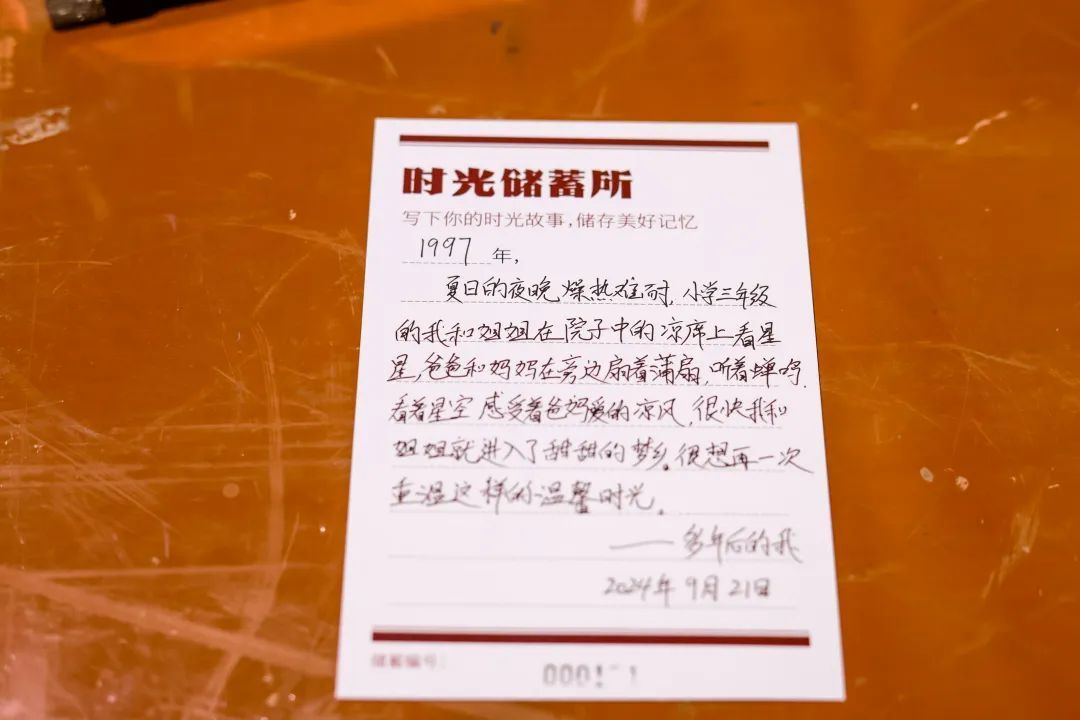 时光储蓄所
写下你的时光故事,储存美好记忆
1997 年,
夏日的夜晚,燥热难耐,小学三年级
的我和姐姐在院子中的凉席上看星
星,爸爸和妈妈在旁边扇着蒲扇,听着蝉鸣,
看着星空,感受着爸妈爱的凉风,很快我和
姐姐就进入了甜甜的梦乡。很想再一次
重温这样的温馨时光。
——多年后的我
2024年9月21日
储蓄编号: